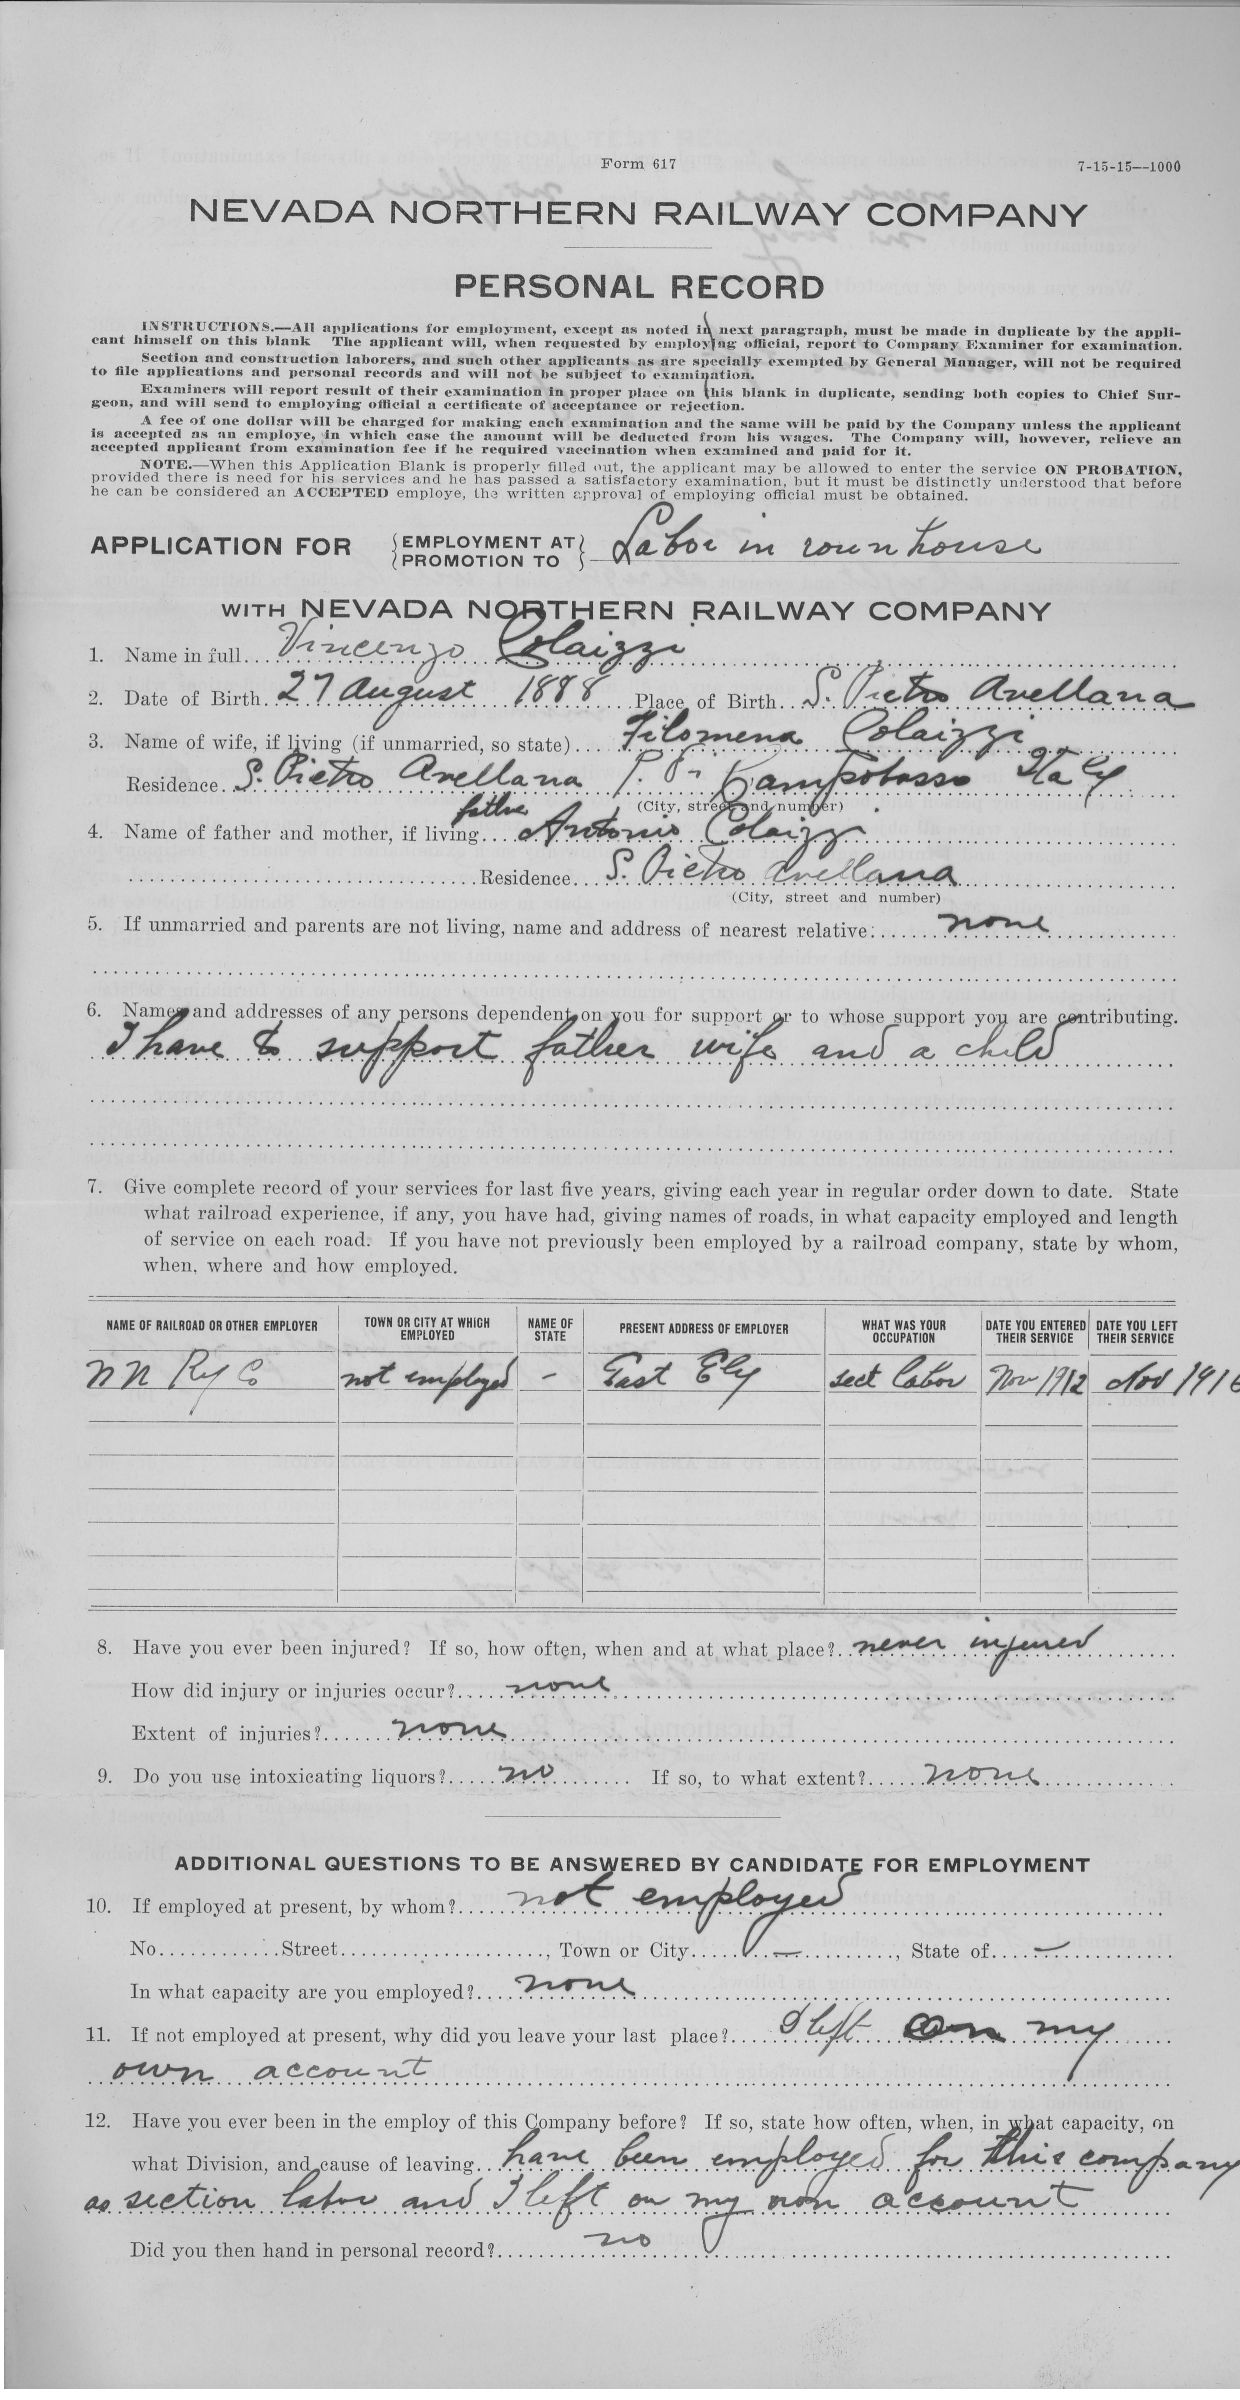 Form 617
7-15-15—1000
NEVADA NORTHERN RAILWAY COMPANY
PERSONAL RECORD
INSTRUCTIONS.—All applications for employment, except as noted in next paragraph, must be made in duplicate by the appli-
cant himself on this blank The applicant will, when requested by employing official, report to Company Examiner for examination.
Section and construction laborers, and such other applicants as are specially exempted by General Manager, will not be required
to file applications and personal records and will not be subject to examination.
Examiners will report result of their examination in proper place on this blank in duplicate, sending both copies to Chief Sur-
geon, and will send to employing official a certificate of acceptance or rejection.
A fee of one dollar will be charged for making each examination and the same will be paid by the Company unless the applicant
is accepted as an employe, in which case the amount will be deducted from his wages. The Company will, however, relieve an
accepted applicant from examination fee if he required vaccination when examined and paid for it.
NOTE.—When this Application Blank is properly filled out, the applicant may be allowed to enter the service ON PROBATION,
provided there is need for his services and he has passed a satisfactory examination, but it must be distinctly understood that before
he can be considered an ACCEPTED employe, the written approval of employing official must be obtained.
APPLICATION FOR {EMPLOYMENT AT / PROMOTION TO} Labor in rounhouse
WITH NEVADA NORTHERN RAILWAY COMPANY
1. Name in full Vincenzo Colaizzi
2. Date of Birth 27 August 1888 Place of Birth S. Pietro Avellana
3. Name of wife, if living (if unmarried, so state) Filomena Colaizzi
Residence S. Pietro Avellana Campobasso Italy
(City, street and number)
father
4. Name of father and mother, if living Antonio Colaizzi
Residence S. Pietro Avellana
(City, street and number)
5. If unmarried and parents are not living, name and address of nearest relative: none
6. Names and addresses of any persons dependent on you for support or to whose support you are contributing.
I have to support father wife and a child
7. Give complete record of your services for last five years, giving each year in regular order down to date. State
what railroad experience, if any, you have had, giving names of roads, in what capacity employed and length
of service on each road. If you have not previously been employed by a railroad company, state by whom,
when, where and how employed.
NAME OF RAILROAD OR OTHER EMPLOYER | TOWN OR CITY AT WHICH EMPLOYED | NAME OF STATE | PRESENT ADDRESS OF EMPLOYER | WHAT WAS YOUR OCCUPATION | DATE YOU ENTERED THEIR SERVICE | DATE YOU LEFT THEIR SERVICE
NN Ry Co | not employed | – | East Ely | sect labor | Nov 1912 | Nov 1916
8. Have you ever been injured? If so, how often, when and at what place? never injured
How did injury or injuries occur? none
Extent of injuries? none
9. Do you use intoxicating liquors? no If so, to what extent? none
ADDITIONAL QUESTIONS TO BE ANSWERED BY CANDIDATE FOR EMPLOYMENT
10. If employed at present, by whom? not employed
No. Street, Town or City –, State of –
In what capacity are you employed? none
11. If not employed at present, why did you leave your last place? I left on my
own account
12. Have you ever been in the employ of this Company before? If so, state how often, when, in what capacity, on
what Division, and cause of leaving have been employed for this company
as section labor and I left on my own account
Did you then hand in personal record? no